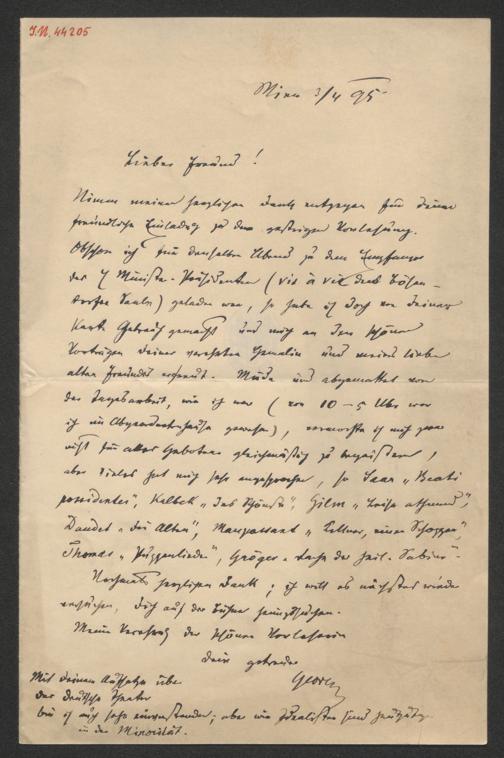 I.N. 44205
Wien 3/4 95
Lieber Freund!
Nimm meinen herzlichen Dank entgegen für Deine
freundliche Einladung zu der gestrigen Vorlesung.
Obschon ich für denselben Abend zu dem Empfange
des Minister-Präsidenten (vis à vis des Bösen-
dorfer Saales) geladen war, so habe ich doch von Deiner
Karte Gebrauch gemacht und mich an den schönen
Vorträgen Deiner verehrten Gemalin und meines lieben
alten Freundes erfreut. Müde und abgemattet von
der Tagesarbeit, wie ich war (von 10 – 5 Uhr war
ich im Abgeordnetenhause gewesen), vermochte ich mich zwar
nicht für alles Gebotene gleichmäßig zu begeistern,
aber Vieles hat mich sehr angesprochen, so Saar „Beati
possidentes", Kalbeck „Das Schönste", Gilm „Leise athmend",
Daudet „Die Alten", Maupassant „Kellner, einen Schoppen",
Thomas „Puppenlieder", Gröger „Rache der heil. Sabine".
Nochmals herzlichen Dank; ich will es nächstens wieder
versuchen, Dich auf der Bühne heimzusuchen.
Meine Verehrung der schönen Vorleserin
Dein getreuer
Georg
Mit Deinen Aufsatze über
das deutsche Theater
bin ich auch sehr einverstanden; aber wir Idealisten sind heutzutage
in der Minorität.